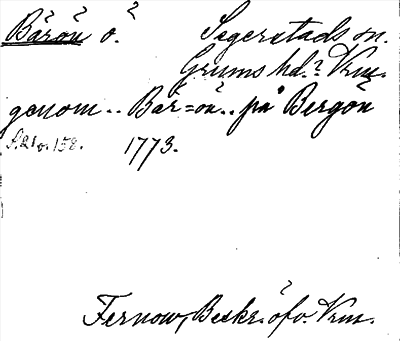 Bärön ö.? Segerstads sn.
Grums hd.? Vrm.
genom .. Bär=ön .. på Bergön
S. 21 o. 158. 1773.
Fernow, Beskr. öfv. Vrm.